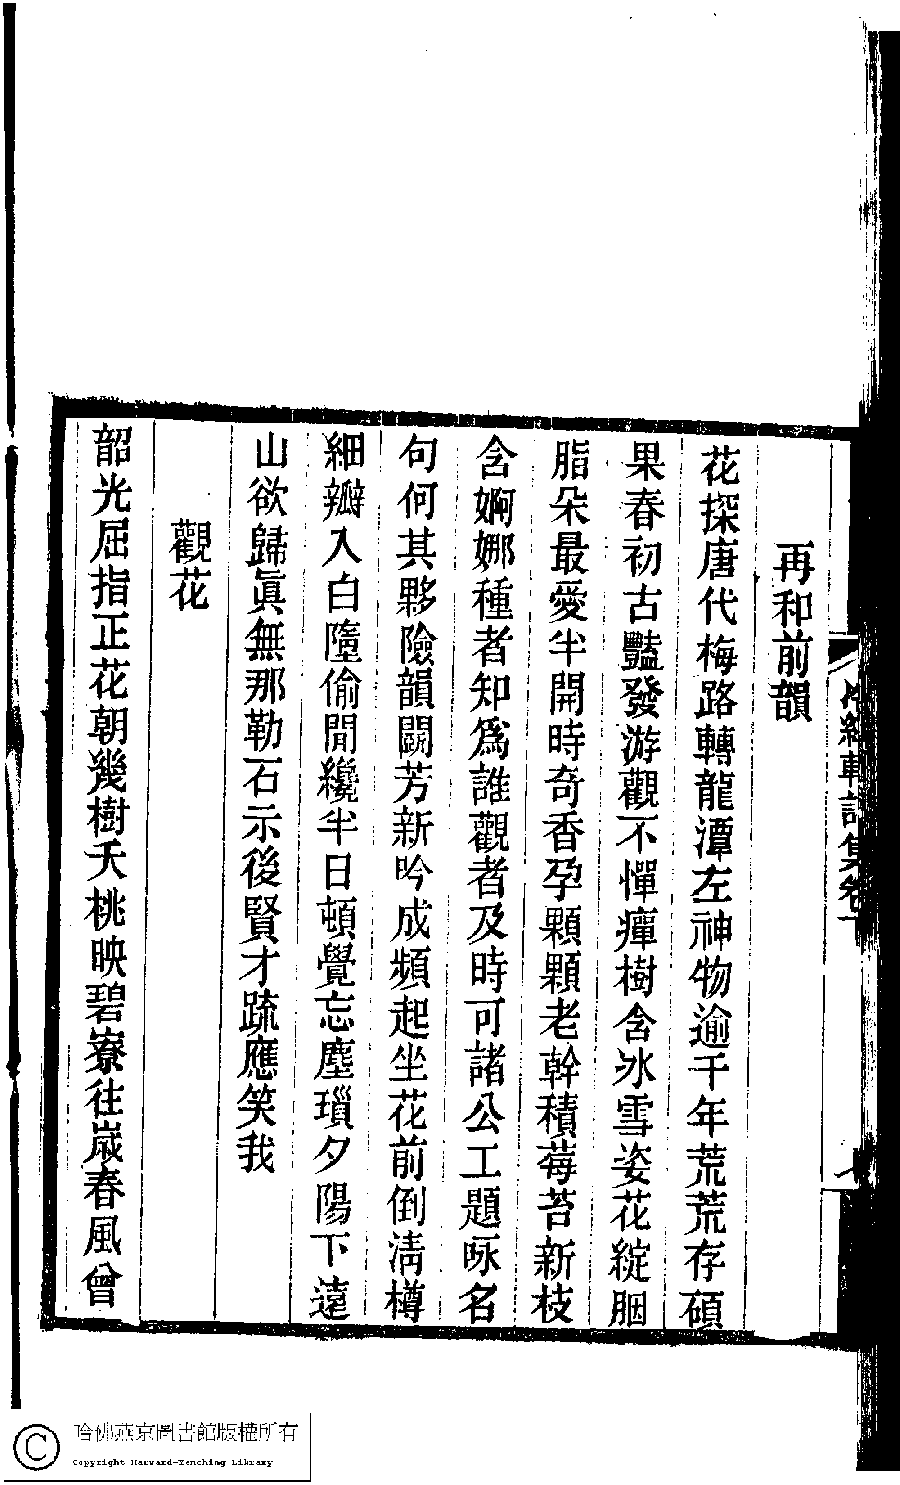 再和前韻
花探唐代梅路轉龍潭左神物逾千年荒荒存碩
果春初古豔發游觀不憚癉樹含冰雪姿花綻胭
脂朵最愛半開時奇香孕顆顆老幹積莓苔新枝
含婀娜種者知爲誰觀者及時可諸公工題咏名
句何其夥險韻鬬芳新吟成頻起坐花前倒清樽
細瓣入白墮偷閒纔半日頓覺忘塵瑣夕陽下遠
山欲歸眞無那勒石示後賢才疏應笑我
觀花
韶光屈指正花朝幾樹夭桃映碧寮往歲春風曾
哈佛燕京圖書館版權所有
Copyright Harvard-Yenching Library